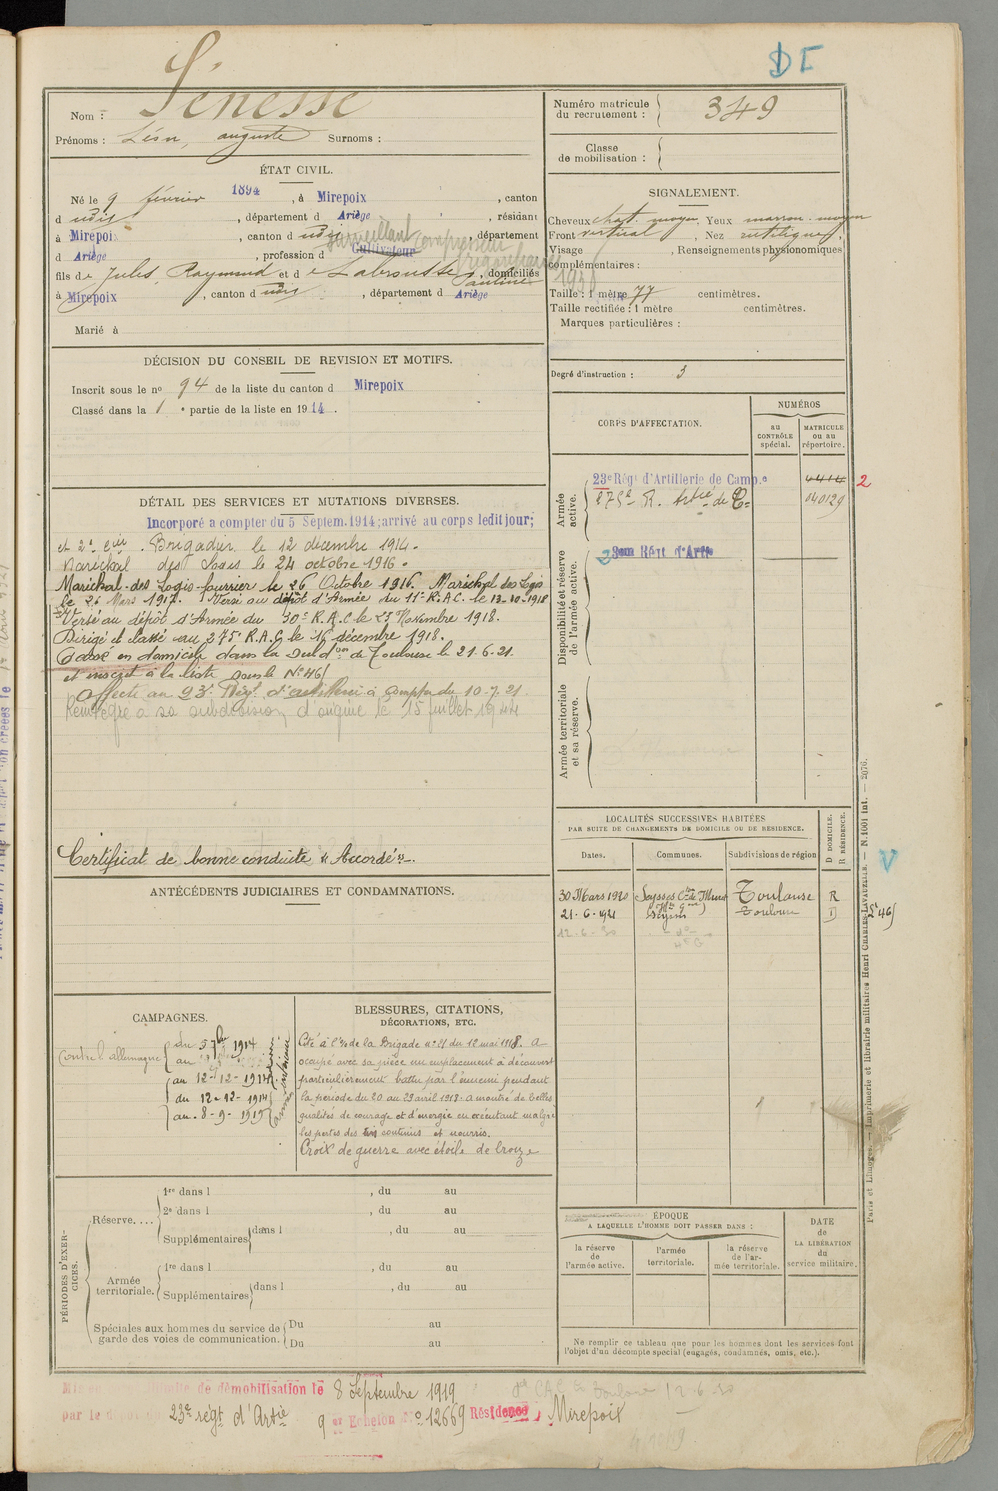 DI
Nom : Senesse
Prénoms : Léon, auguste Surnoms :
Numéro matricule du recrutement : 349
Classe de mobilisation :
ÉTAT CIVIL.
Né le 9 février 1894, à Mirepoix, canton
d udit, département d Ariège, résidant
à Mirepoix, canton d udit, département
d Ariège, profession d Cultivateur
surveillant
fils de Jules, Raymond et de Labrousse Pauline, domiciliés
à Mirepoix, canton d udit, département d Ariège
Marié à
SIGNALEMENT.
Cheveux chat. moyen Yeux marron moyen
Front vertical, Nez rectiligne,
Visage , Renseignements physionomiques
complémentaires :
Taille : 1 mètre 77 centimètres.
Taille rectifiée : 1 mètre centimètres.
Marques particulières :
Degré d'instruction : 3
DÉCISION DU CONSEIL DE REVISION ET MOTIFS.
Inscrit sous le no 94 de la liste du canton d Mirepoix
Classé dans la 1 e partie de la liste en 1914.
DÉTAIL DES SERVICES ET MUTATIONS DIVERSES.
Incorporé a compter du 5 Septem. 1914; arrivé au corps ledit jour;
et 2e cuir. Brigadier le 12 décembre 1914.
Maréchal des Logis le 24 octobre 1916.
Maréchal-des-Logis-fourrier le 26 Octobre 1916. Maréchal des Logis
le 26 Mars 1917. Versé au dépôt d'Armée du 11e R.A.C. le 13-10-1918
Versé au dépôt d'Armée du 30e R.A.C. le 25 Novembre 1918.
Dirigé et classé au 275e R.A.C. le 16 décembre 1918.
Passé en domicile dans la Subdon de Toulouse le 21-6-21.
et inscrit à la liste sous le No 461
Affecté au 23e Régt d'artillerie à compter du 10-7-21
Réintégré à sa subdivision d'origine le 15 juillet 1944
Certificat de bonne conduite "Accordé".
CORPS D'AFFECTATION.
NUMÉROS
au CONTRÔLE spécial.
MATRICULE ou au répertoire.
Armée active.
23e Régt d'Artillerie de Camp.e
4414
2
275e R. Artie de Ce
040129
Disponibilité et réserve de l'armée active.
23em Régt d'Artie
Armée territoriale et sa réserve.
LOCALITÉS SUCCESSIVES HABITÉES
PAR SUITE DE CHANGEMENTS DE DOMICILE OU DE RESIDENCE.
Dates.
Communes.
Subdivisions de région
D DOMICILE.
R RÉSIDENCE.
30 Mars 1920 Seysses Cton de Muret Toulouse R
(Hte Gne)
21-6-1921 Seysses Toulouse D
12-6-30
V
ANTÉCÉDENTS JUDICIAIRES ET CONDAMNATIONS.
CAMPAGNES.
Contre l'allemagne
du 5 7bre 1914
au 12-12-1914
du 12-12-1914
au 8-9-1919
BLESSURES, CITATIONS,
DÉCORATIONS, ETC.
Cité à l'O/de la Brigade no 21 du 12 mai 1918. A
occupé avec sa pièce un emplacement à découvert
particulièrement battu par l'ennemi pendant
la période du 20 au 29 avril 1918. A montré de belles
qualités de courage et d'énergie en exécutant malgré
les pertes des tirs continus et nourris.
Croix de guerre avec étoile de bronze
PÉRIODES D'EXERCICES.
Réserve....
1re dans l , du au
2e dans l , du au
Supplémentaires dans l , du au
Armée territoriale.
1re dans l , du au
Supplémentaires dans l , du au
Spéciales aux hommes du service de garde des voies de communication.
Du au
Du au
ÉPOQUE
A LAQUELLE L'HOMME DOIT PASSER DANS :
la réserve de l'armée active.
l'armée territoriale.
la réserve de l'armée territoriale.
DATE
de
LA LIBÉRATION
du
service militaire.
Ne remplir ce tableau que pour les hommes dont les services font
l'objet d'un décompte spécial (engagés, condamnés, omis, etc.).
Paris et Limoges. — Imprimerie et librairie militaires Henri CHARLES-LAVAUZELLE. — N. 1001 int. — 2976.
de démobilisation le 8 Septembre 1919
par le dépôt du 23e régt d'Artie 9 e Echelon No 12669 Résidence, Mirepoix